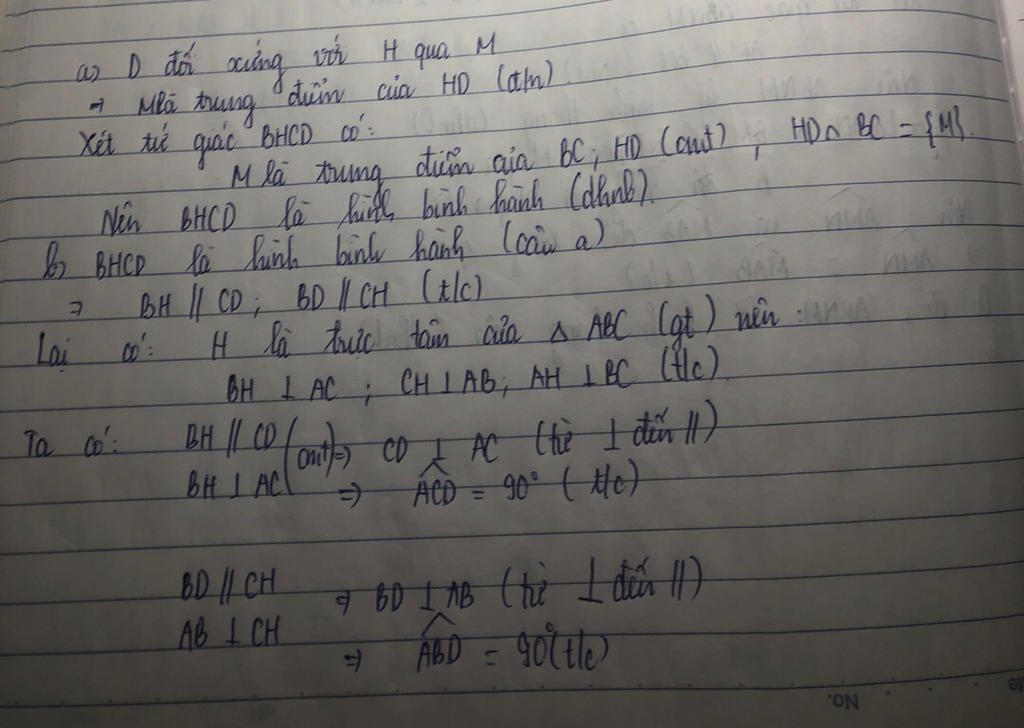 a) D đối xứng với H qua M
→ M là trung điểm của HD (đ/n)
Xét tứ giác BHCD có:
M là trung điểm của BC; HD (cmt), HD ∩ BC = {M}.
Nên BHCD là hình bình hành (dhnb).
b) BHCD là hình bình hành (câu a)
⇒ BH // CD; BD // CH (t/c)
Lại có: H là trực tâm của △ ABC (gt) nên:
BH ⊥ AC; CH ⊥ AB; AH ⊥ BC (t/c)
Ta có: BH // CD (cmt) ⇒ CD ⊥ AC (từ ⊥ đến //)
BH ⊥ AC ⇒ \widehat{ACD} = 90° (t/c)
BD // CH ⇒ BD ⊥ AB (từ ⊥ đến //)
AB ⊥ CH
⇒ \widehat{ABD} = 90° (t/c)
No.